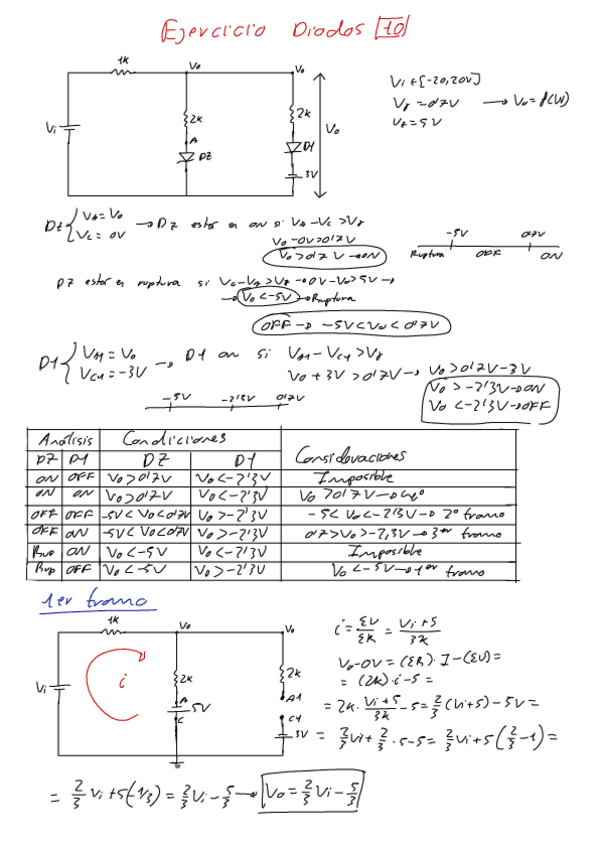 Ejercicio Diodos [10]
1K Vo Vo
Vi 2K A DZ 2K D1 3V Vo
Vi ∈ [-20,20V]
Vγ = 0'7V → Vo = f(Vi)
Vz = 5V
DZ { VA = Vo
VC = 0V
→ DZ estar en on si VA - VC > Vγ
Vo - 0V > 0'7V
Vo > 0'7V → ON
-5V 0'7V
Ruptura OFF ON
DZ estar en ruptura si VC - VA > VZ → 0V - Vo > 5V →
→ Vo < -5V → Ruptura
OFF → -5V < Vo < 0'7V
D1 { VA1 = Vo
VC1 = -3V
→ D1 on si VA1 - VC1 > Vγ
Vo + 3V > 0'7V → Vo > 0'7V - 3V
Vo > -2'3V → ON
Vo < -2'3V → OFF
-5V -2'3V 0'7V
Análisis Condiciones Consideraciones
DZ D1 DZ D1
ON OFF Vo > 0'7V Vo < -2'3V Imposible
ON ON Vo > 0'7V Vo < -2'3V Vo > 0'7V → 4º
OFF OFF -5V < Vo < 0'7V Vo > -2'3V -5 < Vo < -2'3V → 2º tramo
OFF ON -5V < Vo < 0'7V Vo > -2'3V 0'7 > Vo > -2,3V → 3er tramo
Rup ON Vo < -5V Vo < -2'3V Imposible
Rup OFF Vo < -5V Vo > -2'3V Vo < -5V → 1er tramo
1er tramo
1K Vo Vo
Vi i 2K A 5V C 2K A1 C1 3V
i = ΣV/ΣR = Vi+5/3K
Vo - 0V = (ΣR) · I - (ΣV) =
= (2K) · i - 5 =
= 2K · Vi+5/3K - 5 = 2/3 (Vi+5) - 5V =
= 2/3 Vi + 2/3 · 5 - 5 = 2/3 Vi + 5 (2/3 - 1) =
= 2/3 Vi + 5 (-1/3) = 2/3 Vi - 5/3 → Vo = 2/3 Vi - 5/3